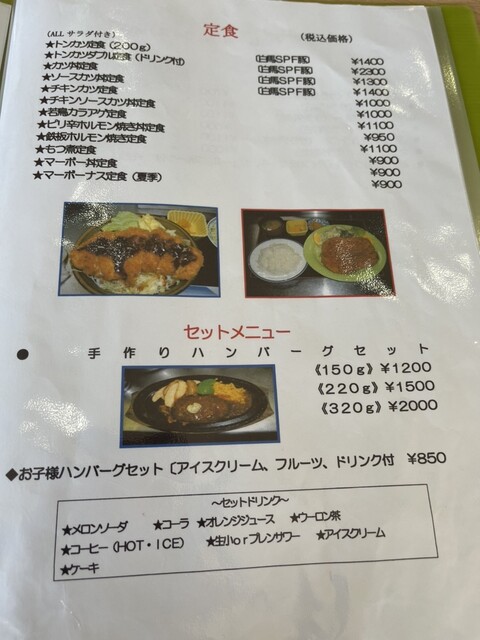 定食
(ALL サラダ付き) (税込価格)
★トンカツ定食(200g) (白馬SPF豚) ¥1400
★トンカツダブル定食(ドリンク付) (白馬SPF豚) ¥2300
★カツ丼定食 (白馬SPF豚) ¥1300
★ソースカツ丼定食 (白馬SPF豚) ¥1400
★チキンカツ定食 ¥1000
★チキンソースカツ丼定食 ¥1000
★若鳥カラアゲ定食 ¥1100
★ピリ辛ホルモン焼き丼定食 ¥950
★鉄板ホルモン焼き定食 ¥1100
★もつ煮定食 ¥900
★マーボー丼定食 ¥900
★マーボーナス定食(夏季) ¥900
セットメニュー
● 手作りハンバーグセット
《150g》¥1200
《220g》¥1500
《320g》¥2000
◆お子様ハンバーグセット〔アイスクリーム、フルーツ、ドリンク付 ¥850
~セットドリンク~
★メロンソーダ ★コーラ ★オレンジジュース ★ウーロン茶
★コーヒー(HOT・ICE) ★生小orブレンサワー ★アイスクリーム
★ケーキ